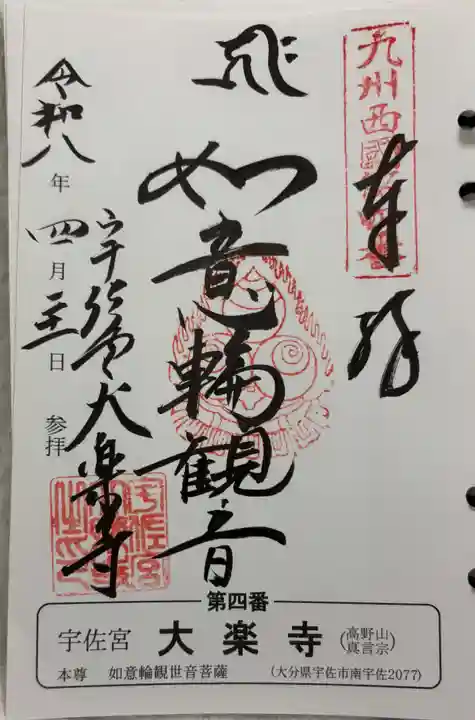 九州西國第四番
奉拝
如意輪観音
宇佐宮大楽寺
令和八年四月二十一日 参拝
第四番
宇佐宮 大楽寺 (高野山真言宗)
本尊 如意輪観世音菩薩 (大分県宇佐市南宇佐2077)